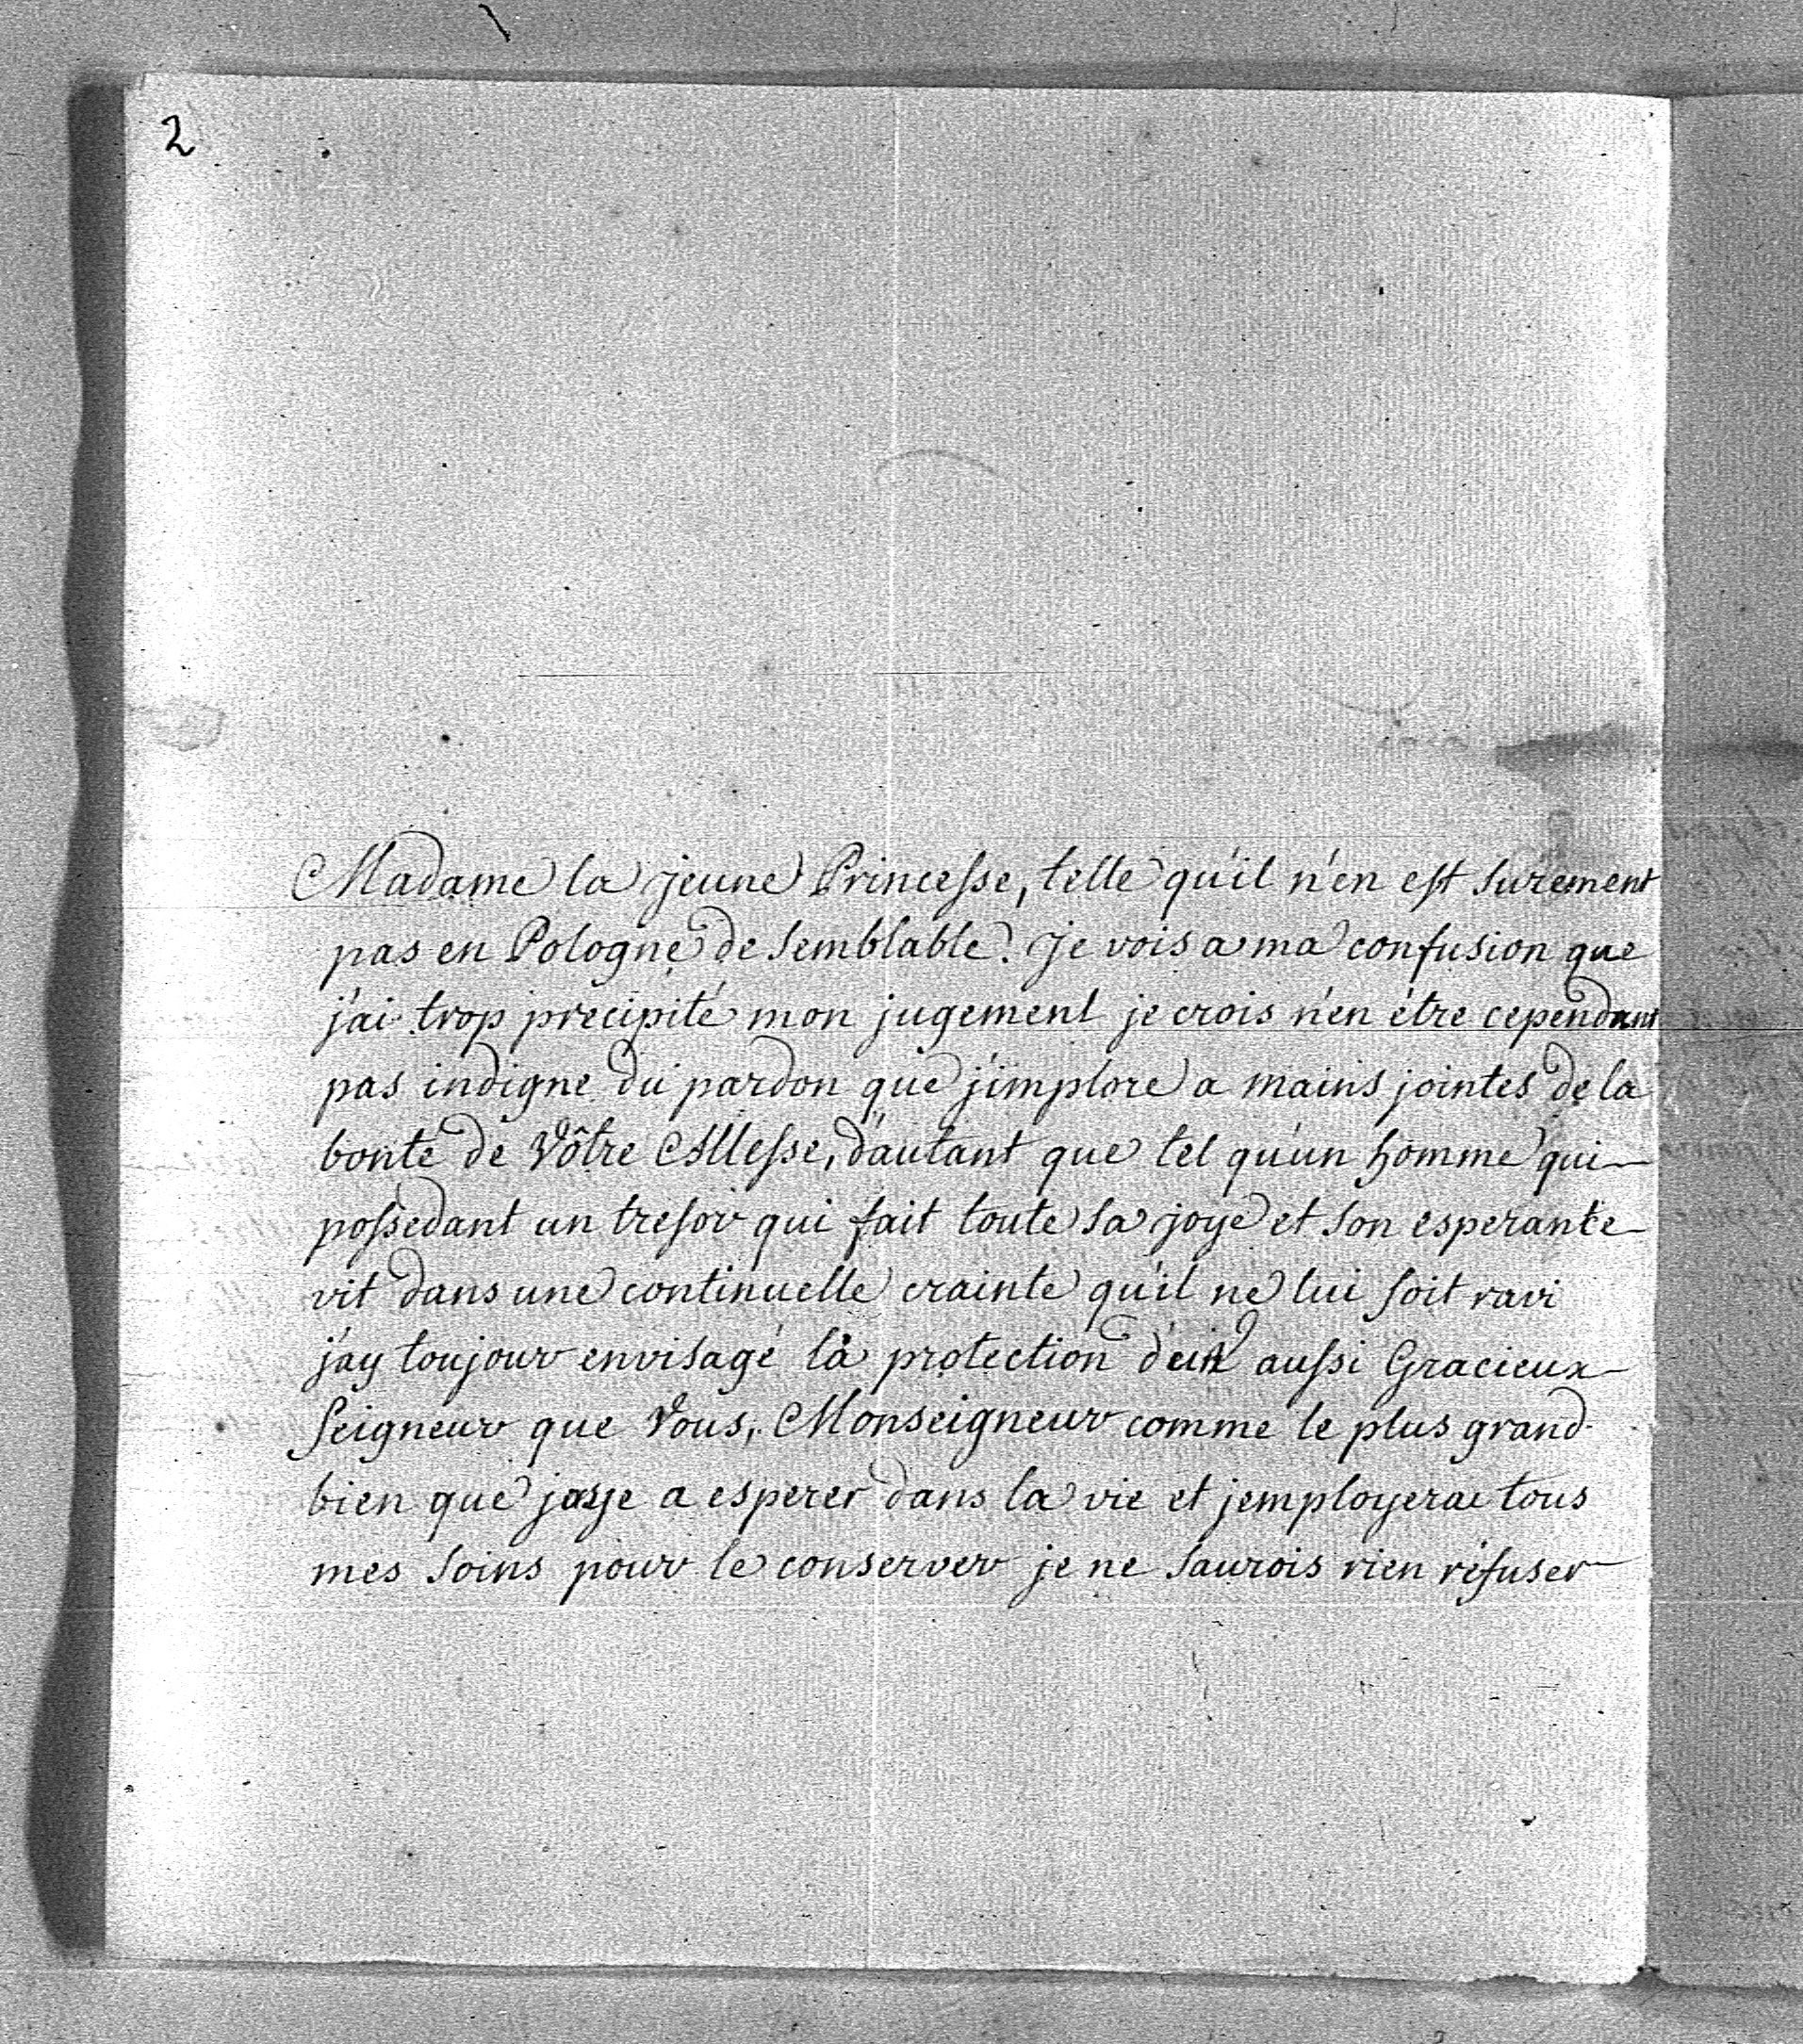 2
Madame la jeune Princesse, telle qu'il n'en est surement
pas en Pologne de semblable. Je vois a ma confusion que
j'ai trop precipité mon jugement je crois n'en étre cependant
pas indigne du pardon que j'implore a mains jointes de la
bonté de Vôtre Altesse, d'autant que tel qu'un homme qui
possedant un tresor qui fait toute sa joye et son esperante
vit dans une continuelle crainte qu'il ne lui soit ravi
j'ay toujour envisagé la protection d'un aussi Gracieux
Seigneur que Vous, Monseigneur comme le plus grand
bien que jaye a esperer dans la vie et jemployerai tous
mes soins pour le conserver je ne saurois rien réfuser